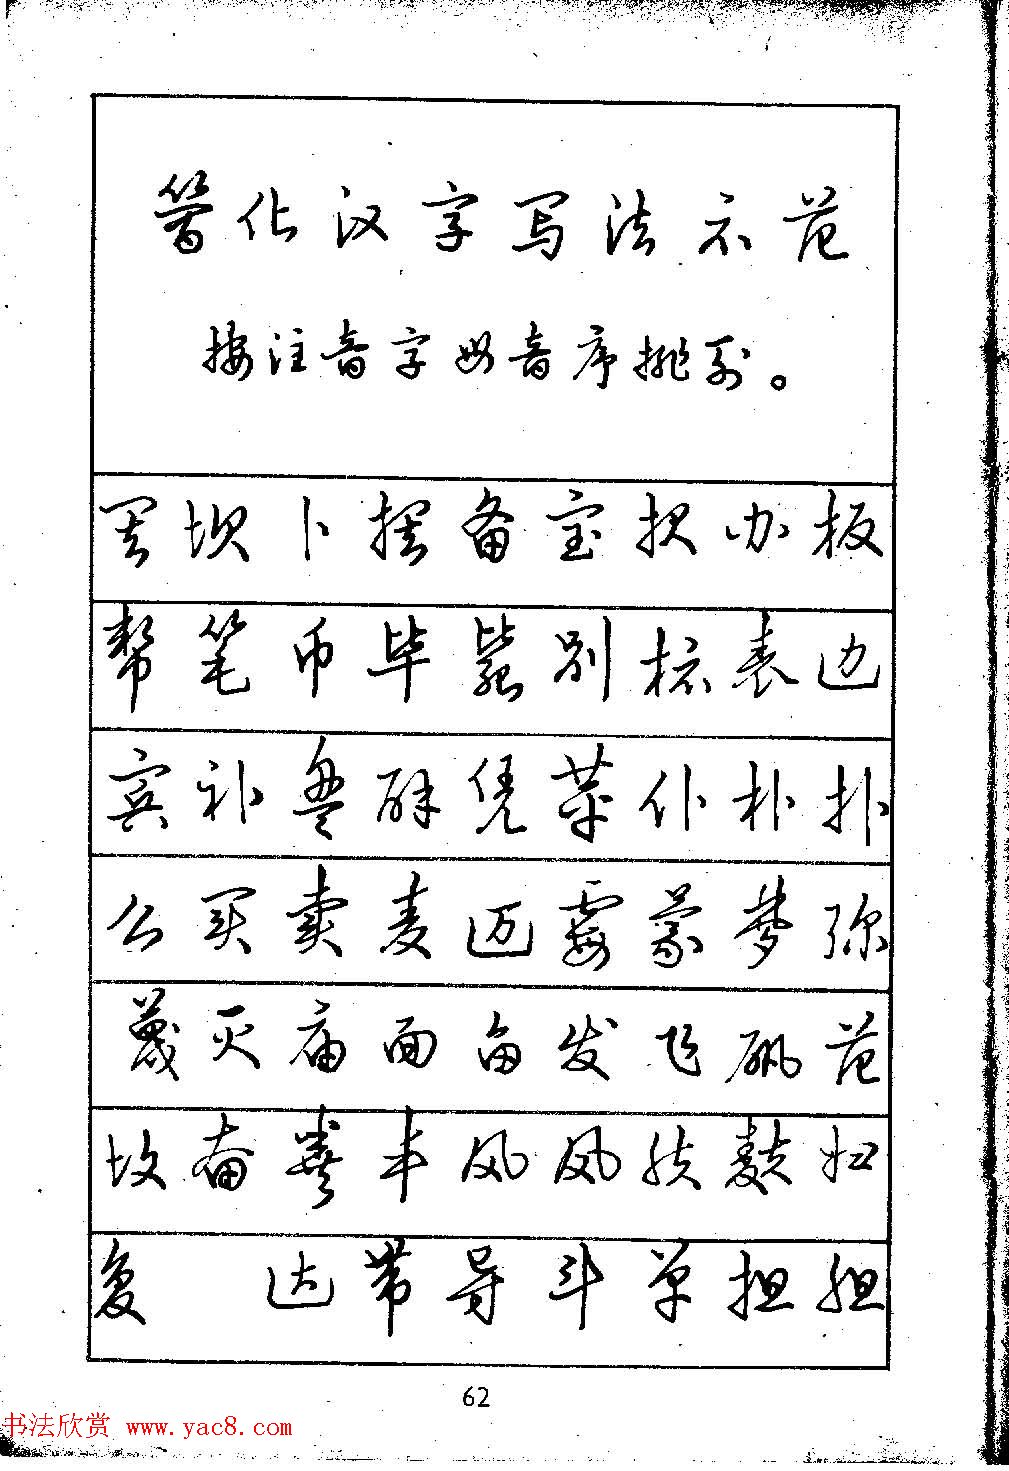 简化汉字写法示范
按注音字母音序排列。
罢坝卜摆备宝报办板
帮笔币毕毙别标表边
宾补盘辟凭苹仆朴扑
么买卖麦迈霉蒙梦弥
蔑灭庙面亩发飞矾范
坟奋粪丰风凤肤麸妇
复 达带导斗单担胆
62
书法欣赏 www.yac8.com